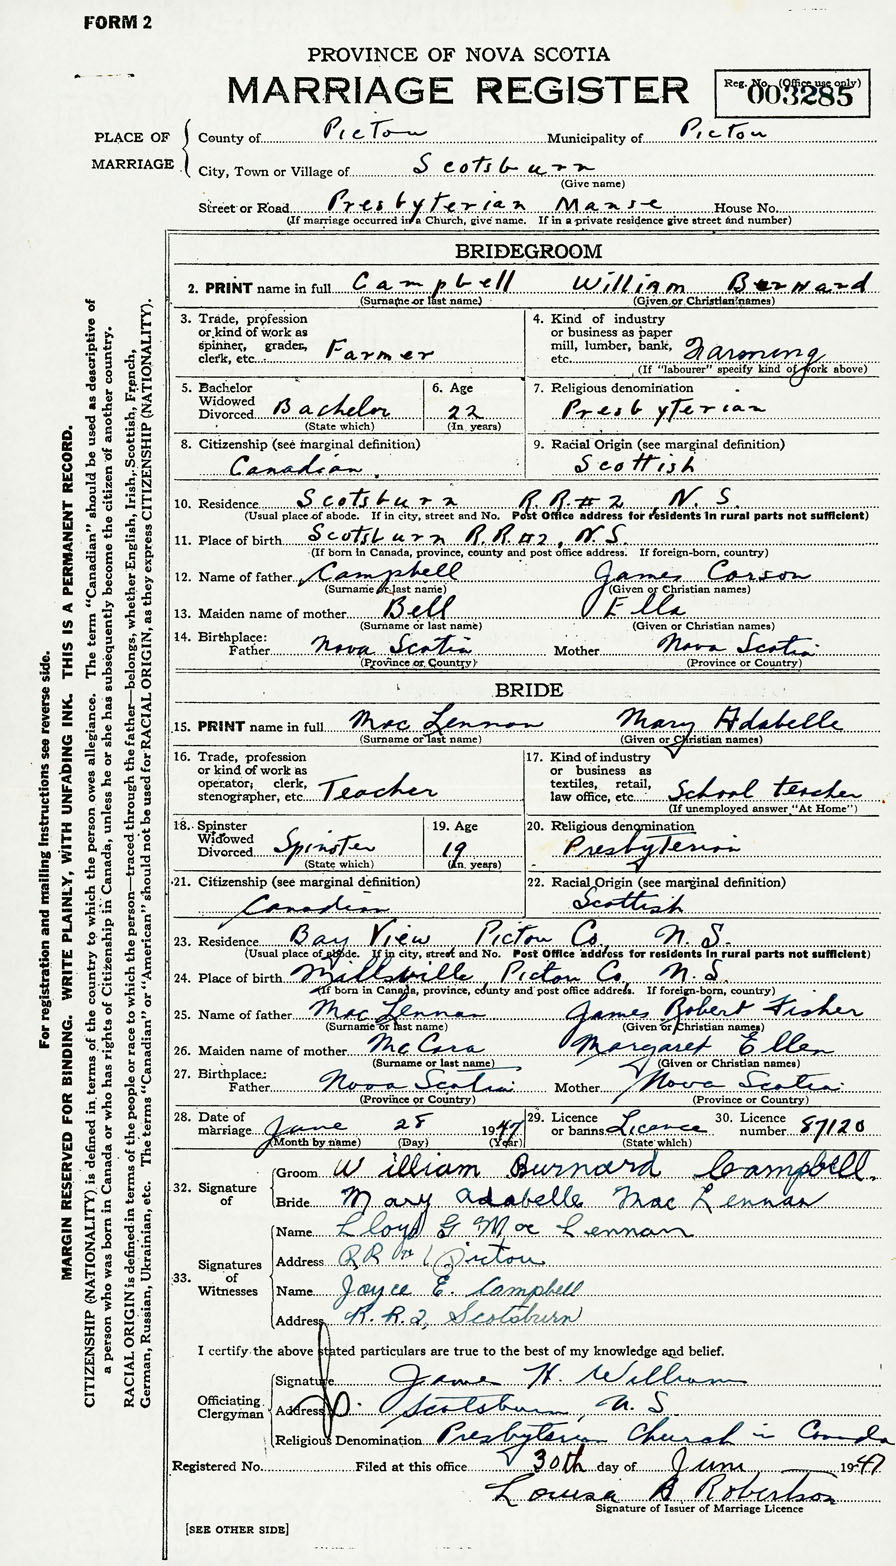 FORM 2
PROVINCE OF NOVA SCOTIA
MARRIAGE REGISTER
Reg. No. (Office use only)
003285
PLACE OF MARRIAGE
County of Pictou Municipality of Pictou
City, Town or Village of Scotsburn
(Give name)
Street or Road Presbyterian Manse House No.
(If marriage occurred in a Church, give name. If in a private residence give street and number)
BRIDEGROOM
2. PRINT name in full Campbell William Burnard
(Surname or last name) (Given or Christian names)
3. Trade, profession or kind of work as spinner, grader, clerk, etc. Farmer
4. Kind of industry or business as paper mill, lumber, bank, etc. Farming
(If "labourer" specify kind of work above)
5. Bachelor Widowed Divorced Bachelor
(State which)
6. Age 22
(In years)
7. Religious denomination
Presbyterian
8. Citizenship (see marginal definition)
Canadian
9. Racial Origin (see marginal definition)
Scottish
10. Residence Scotsburn R.R.#2 N.S.
(Usual place of abode. If in city, street and No. Post Office address for residents in rural parts not sufficient)
11. Place of birth Scotsburn R.R.#2, N.S.
(If born in Canada, province, county and post office address. If foreign-born, country)
12. Name of father Campbell James Corson
(Surname or last name) (Given or Christian names)
13. Maiden name of mother Bell Ella
(Surname or last name) (Given or Christian names)
14. Birthplace: Father Nova Scotia Mother Nova Scotia
(Province or Country) (Province or Country)
BRIDE
15. PRINT name in full Mac Lennan Mary Adabelle
(Surname or last name) (Given or Christian names)
16. Trade, profession or kind of work as operator, clerk, stenographer, etc. Teacher
17. Kind of industry or business as textiles, retail, law office, etc. School teacher
(If unemployed answer "At Home")
18. Spinster Widowed Divorced Spinster
(State which)
19. Age 19
(In years)
20. Religious denomination
Presbyterian
21. Citizenship (see marginal definition)
Canadian
22. Racial Origin (see marginal definition)
Scottish
23. Residence Bay View Pictou Co. N.S.
(Usual place of abode. If in city, street and No. Post Office address for residents in rural parts not sufficient)
24. Place of birth Millsville Pictou Co. N.S.
(If born in Canada, province, county and post office address. If foreign-born, country)
25. Name of father Mac Lennan James Robert Fisher
(Surname or last name) (Given or Christian names)
26. Maiden name of mother McCara Margaret Ellen
(Surname or last name) (Given or Christian names)
27. Birthplace: Father Nova Scotia Mother Nova Scotia
(Province or Country) (Province or Country)
28. Date of marriage June 28 1947
(Month by name) (Day) (Year)
29. Licence or banns Licence
(State which)
30. Licence number 87120
32. Signature of
Groom William Burnard Campbell.
Bride Mary Adabelle Mac Lennan
33. Signatures of Witnesses
Name Lloyd G Mac Lennan
Address RR # 1 Pictou
Name Joyce E. Campbell
Address R.R.2, Scotsburn
I certify the above stated particulars are true to the best of my knowledge and belief.
Officiating Clergyman
Signature James H. William
Address Scotsburn, N.S.
Religious Denomination Presbyterian Church in Canada
Registered No. Filed at this office 30th day of June 1947
Louisa B Robertson
Signature of Issuer of Marriage Licence
[SEE OTHER SIDE]
For registration and mailing instructions see reverse side.
MARGIN RESERVED FOR BINDING. WRITE PLAINLY, WITH UNFADING INK. THIS IS A PERMANENT RECORD.
CITIZENSHIP (NATIONALITY) is defined in terms of the country to which the person owes allegiance. The term "Canadian" should be used as descriptive of
a person who was born in Canada or who has rights of Citizenship in Canada, unless he or she has subsequently become the citizen of another country.
RACIAL ORIGIN is defined in terms of the people or race to which the person—traced through the father—belongs, whether English, Irish, Scottish, French,
German, Russian, Ukrainian, etc. The terms "Canadian" or "American" should not be used for RACIAL ORIGIN, as they express CITIZENSHIP (NATIONALITY).